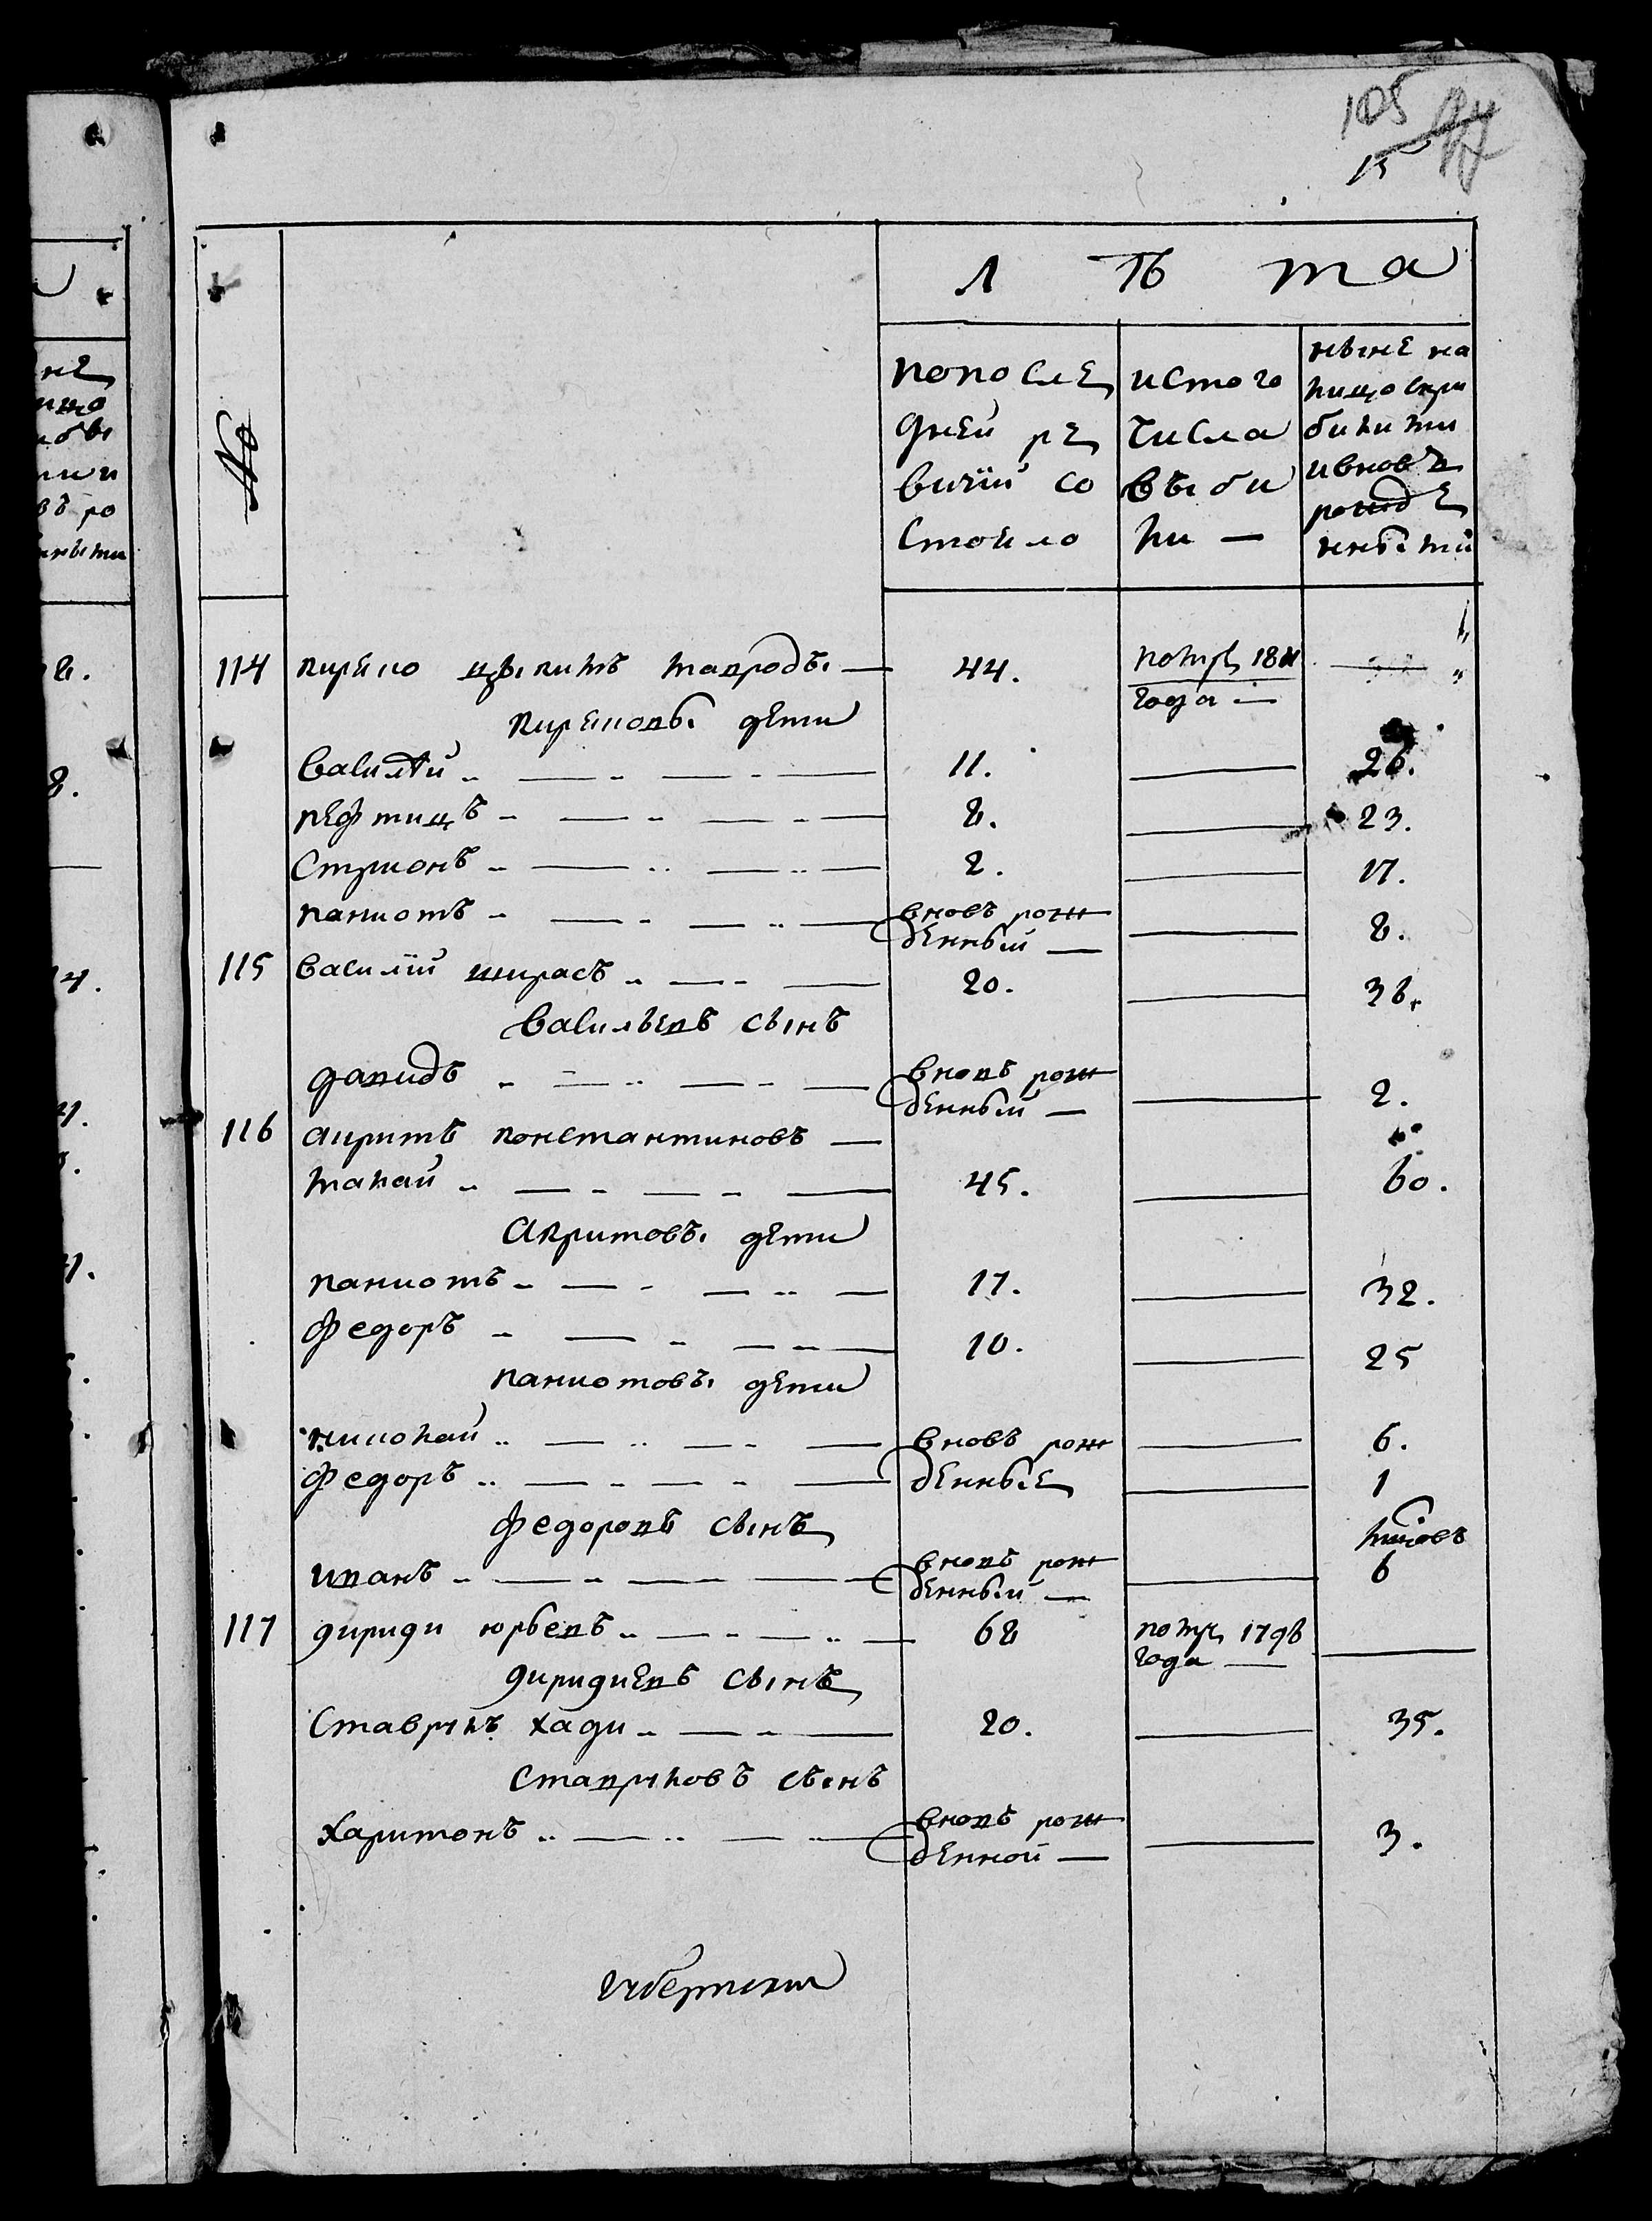 105
15
Л Ѣ та
№
попослѣ
дней ре
вичiи со
стояло
истого
числа
выбы
ло —
ныне на
лицо с при
былыми
ивновъ
рожде
нными
114 кирѣяо цыкитъ мавроды — 44. помре 1811 года —
кирѣяовы дети
Василѣй 11. 26.
кефтицъ 8. 23.
Стрионъ 2. 17.
паниотъ вновь рож
денный — 8.
115 василiй ширасъ 20. 36.
васильевъ сынъ
давидъ вновь рож
денный — 2.
116 акритъ константиновъ —
малай 45. 60.
акритовы дети
паниотъ 17. 32.
федоръ 10. 25
паниотовы дети
николай вновь рож 6.
федоръ денные 1
федоровъ сынъ
иванъ вновь рож
денный — 6
117 дириди юрьевъ 68 помре 1796
года —
диридиевъ сынъ
Ставрулъ хади 20. 35.
ставруловъ сынъ
харитонъ вновь рож
денной — 3.
губернскии